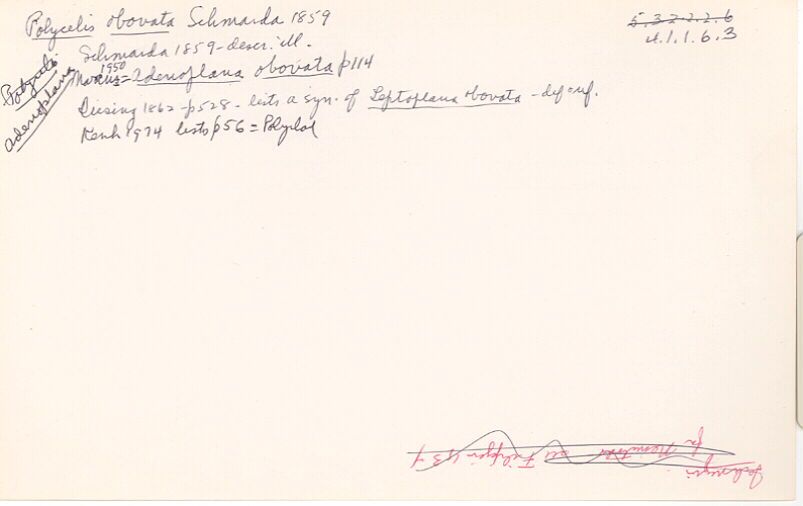 Polycelis obovata Schmarda 1859
5.3.2.2.2.6
4.1.1.6.3
Schmarda 1859 - descr. ill.
Polycelis
Adenoplana
Marcus 1950 = Adenoplana obovata p114
Diesing 1862 - p528 - lists a syn. of Leptoplana obovata - def + ref.
Kenk 1974 lists p56 = Polyclad